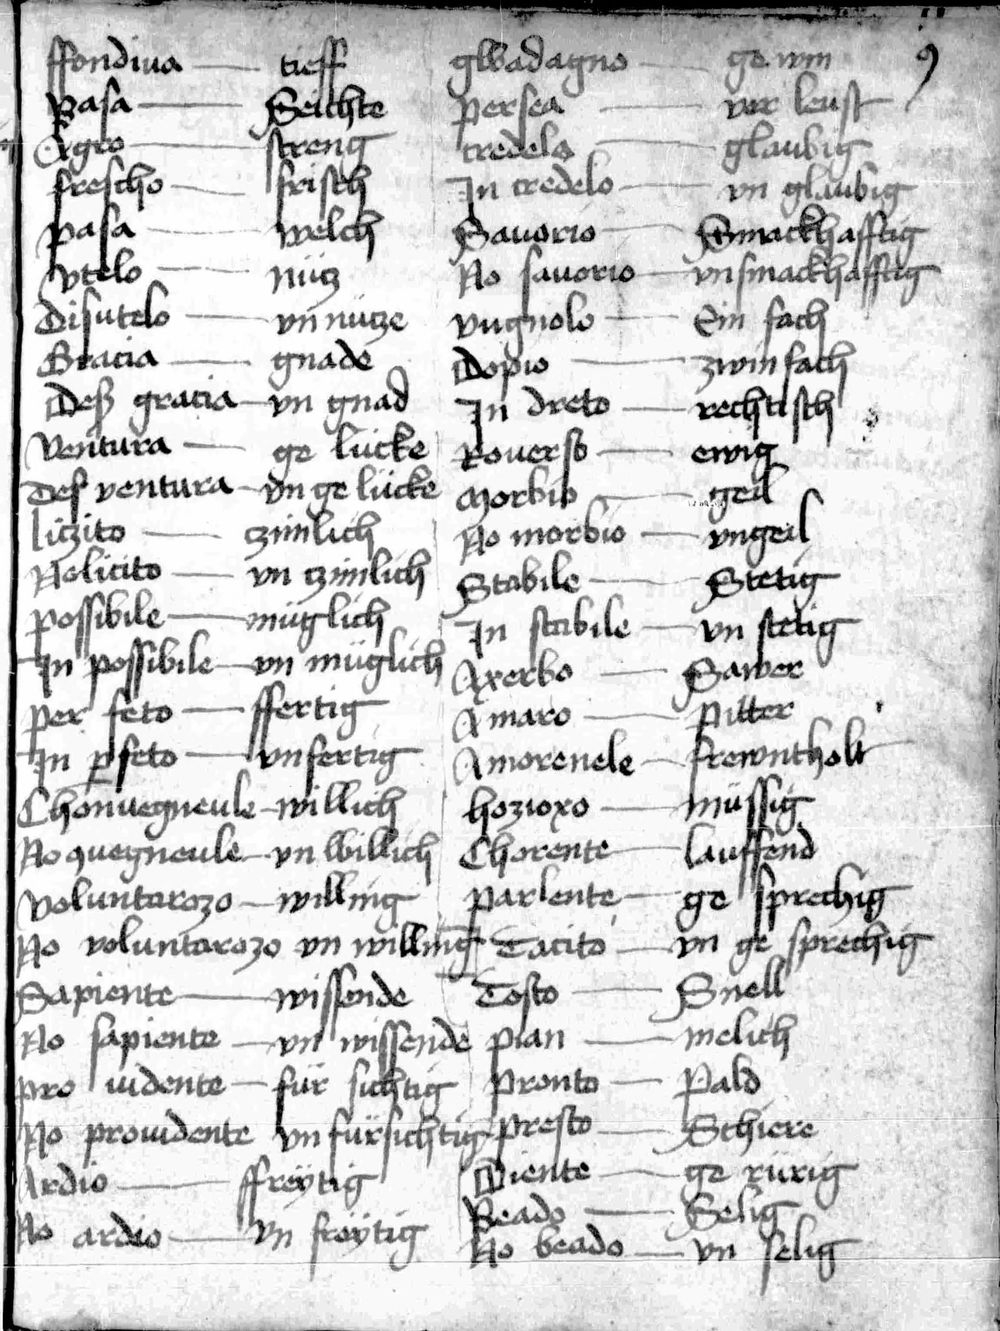 9
ffondiua — tieff
Basa — Seichte
Agro — streng
frescho — frisch
pasa — welch
vtelo — nücz
Disutelo — vn nücze
Gracia — gnade
Des gracia — vn gnad
Ventura — ge lücke
Des ventura — vn ge lücke
liczito — czimlich
No licito — vn czimlich
possibile — müglich
In possibile — vn müglich
per feto — ffertig
In pfeto — vnfertig
Chonuegneule — willich
No quegneule — vn willich
Voluntarozo — willing
No voluntarozo vn willing
Sapiente — wissende
No sapiente — vn wissende
pro uidente — für sichtig
No prouidente vn fürsichtig
Ardio — ffreÿtig
No ardio — vn freÿtig
gwadagno — ge win
persea — ver leust
credelo — glaubig
In credelo — vn glaubig
Sauorio — Smackhafftig
No sauorio — vnsmackhafftig
vugnolo — Ein fach
Dopio — zwinfach
In dreto — rechtisch
Rouerso — ewig
Morbio — geil
No morbio — vngeil
Stabile — Stetig
In stabile — vn stetig
Axerbo — Sawer
Amaro — pitter
Amoreuele — frewntholt
hozioxo — müssig
Chorente — lauffend
parlente — ge sprechig
Tacito — vn ge sprechig
Tosto — Snell
pian — melich
pronto — Pald
presto — Schiere
Diente — ge rürig
Beado — Selig
No beado — vn selig